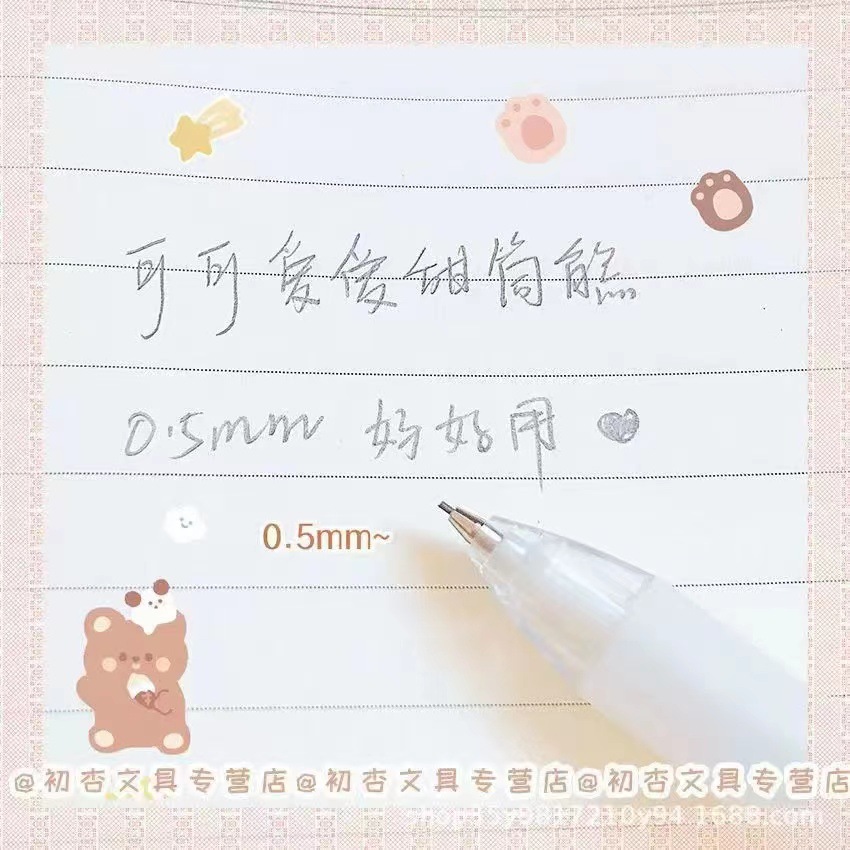 可可爱爱甜筒熊
0.5mm 好好用
0.5mm~
@初杏文具专营店@初杏文具专营店@初杏文具专营店